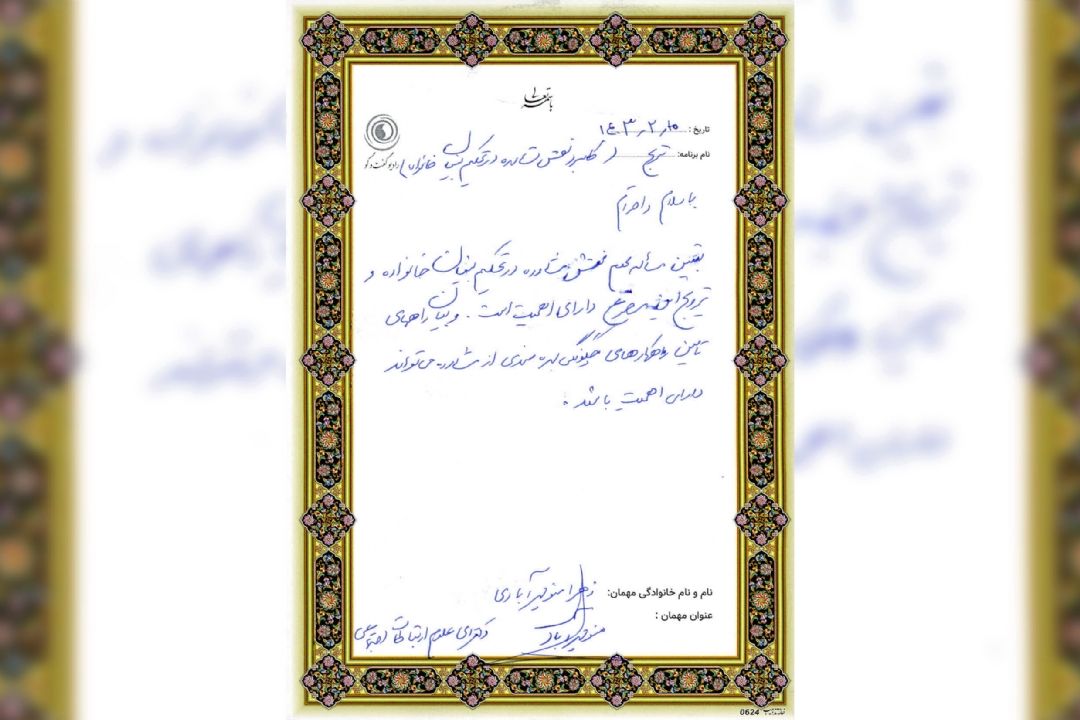 باسمه تعالی
تاریخ: ۱۴۰۳٫۲٫۱۰
نام برنامه: ترنج (کاربرد نقش مشاوره در تحکیم بنیان خانواده) رادیو گفت و گو
با سلام و احترام
تبیین مساله مهم نقش مشاوره در تحکیم بنیان خانواده و
ترویج این موضوع دارای اهمیت است. و بیان راههای
تامین راهکارهای چگونگی بهره مندی از مشاوره می‌تواند
دارای اهمیت باشد.
نام و نام خانوادگی مهمان: زهرا منوچهرآبادی
عنوان مهمان:
دکترای علوم ارتباطات اجتماعی
0624